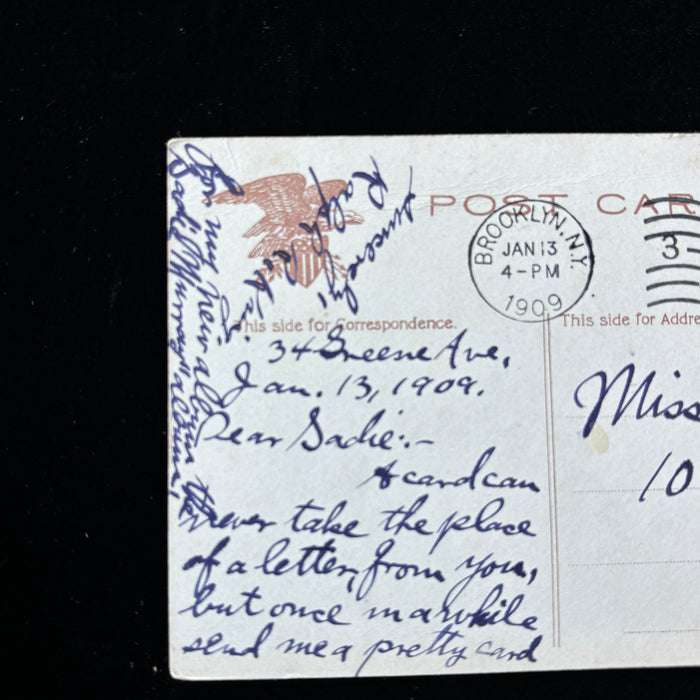 POST CAR
BROOKLYN, N.Y.
JAN 13
4-PM
1909
3-
This side for Correspondence.
This side for Addre
34 Greene Ave,
Jan. 13, 1909.
Dear Sadie:-
A card can
never take the place
of a letter, from you,
but once in a while
send me a pretty card
for my new album the
"Sadie Murray" album,
Sincerely,
Ralph
Miss
10